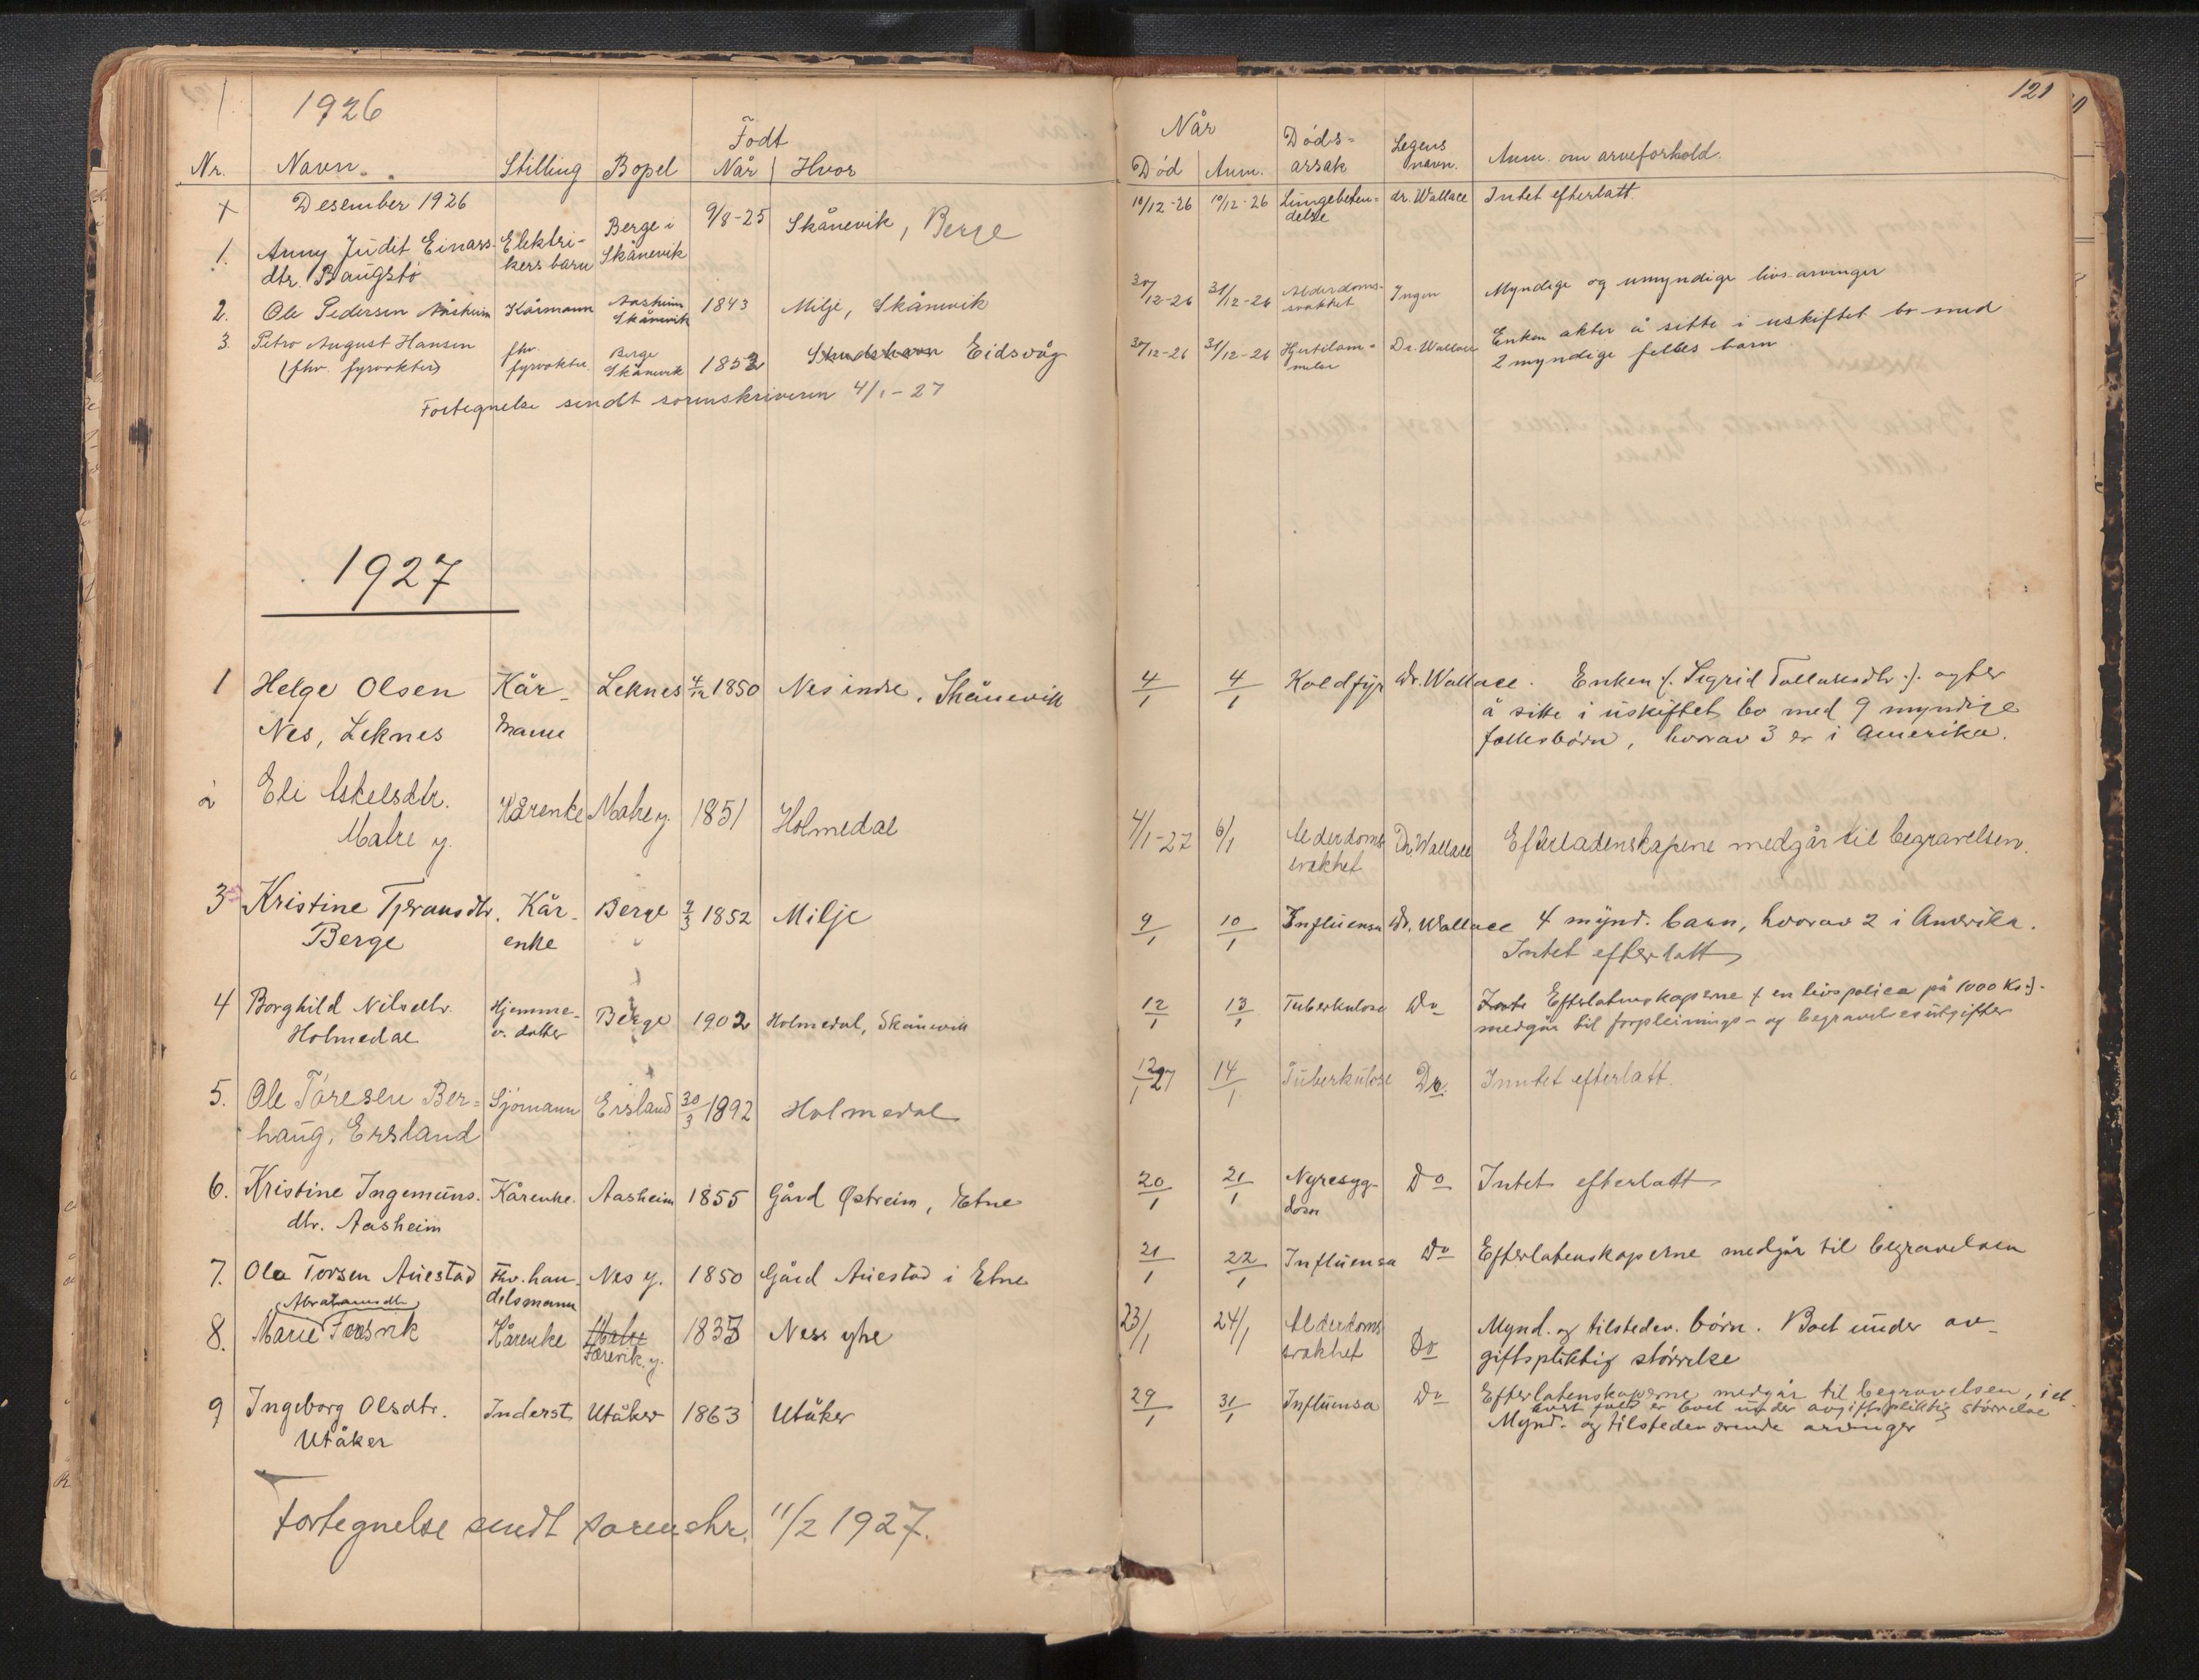 1926
121
Født
Når
Nr. Navn. Stilling Bopel Når Hvor Død Anm. Døds- arsak Legens navn. Anm. om arveforhold.
+ Desember 1926
1. Anny Judit Einars- Elektri- Berge i 9/8-25 Skånevik, Berge 10/12-26 10/12-26 Lungebeten- dr. Wallace Intet efterlatt.
dtr. Baugstø kers barn Skånevik delse
2. Ole Pedersen Aasheim Kårmann Aasheim 1843 Milje, Skånevik 30/12-26 31/12-26 Alderdoms- Ingen Myndige og umyndige livsarvinger
Skånevik svakhet
3. Petro August Hansen fhv. Berge 1852 Eidsvåg 30/12-26 31/12-26 Hjertelam- Dr. Wallace Enken akter å sitte i uskiftet bo med
(fhv. fyrvokter) fyrvokter Skånevik melse 2 myndige felles barn
Fortegnelse sendt sorenskriveren 4/1-27
1927
1 Helge Olsen Kår- Leknes 4/12 1850 Nes indre, Skånevik 4/1 4/1 Koldfyr Dr. Wallace. Enken /: Sigrid Tollaksdtr :/ agter
Nes, Leknes mann å sitte i uskiftet bo med 9 myndige
fællesbørn, hvorav 3 er i Amerika.
2 Eli Askelsdtr. Kårenke Matre y. 1851 Holmedal 4/1-27 6/1 Alderdoms Dr. Wallace Efterladenskapene medgår til begravelsen.
Matre y. svakhet
3 Kristine Tjeransdtr. Kår- Berge 9/3 1852 Milje 9/1 10/1 Influensa Dr. Wallace 4 mynd. barn, hvorav 2 i Amerika.
Berge enke Intet efterlatt
4 Borghild Nilsdtr. Hjemme- Berge 1902 Holmedal, Skånevik 12/1 13/1 Tuberkulose Do Efterlatenskaperne + en livspolice på 1000 Kr.
Holmedal v. datter medgår til forpleinings- og begravelsesutgifter
5. Ole Tøresen Ber- Sjømann Ersland 30/3 1892 Holmedal 12/1 27 14/1 Tuberkulose Do. Inntet efterlatt.
haug, Ersland
6. Kristine Ingemuns- Kårenke. Aasheim 1855 Gård Østreim, Etne 20/1 21/1 Nyresyg- Do Intet efterlatt
dtr. Aasheim dom
7. Ola Torsen Auestad Fhv. han- Nes y. 1850 Gård Auestad i Etne 21/1 22/1 Influensa Do Efterlatenskaperne medgår til begravelsen
delsmann
Abrahamsdtr
8. Marie Færevik Kårenke Matre 1833 Ness yhe 23/1 24/1 Alderdoms Do Mynd. og tilstedev. børn. Boet under av-
Færevik y. svakhet giftspliktig størrelse
9 Ingeborg Olsdtr. Inderst Utåker 1863 Utåker 29/1 31/1 Influensa Do Efterlatenskaperne medgår til begravelsen, i et-
hvert fald er boet under avgiftspliktig størrelse
Utåker Mynd. og tilstedeværende arvinger
Fortegnelse sendt sorenskr. 11/2 1927.